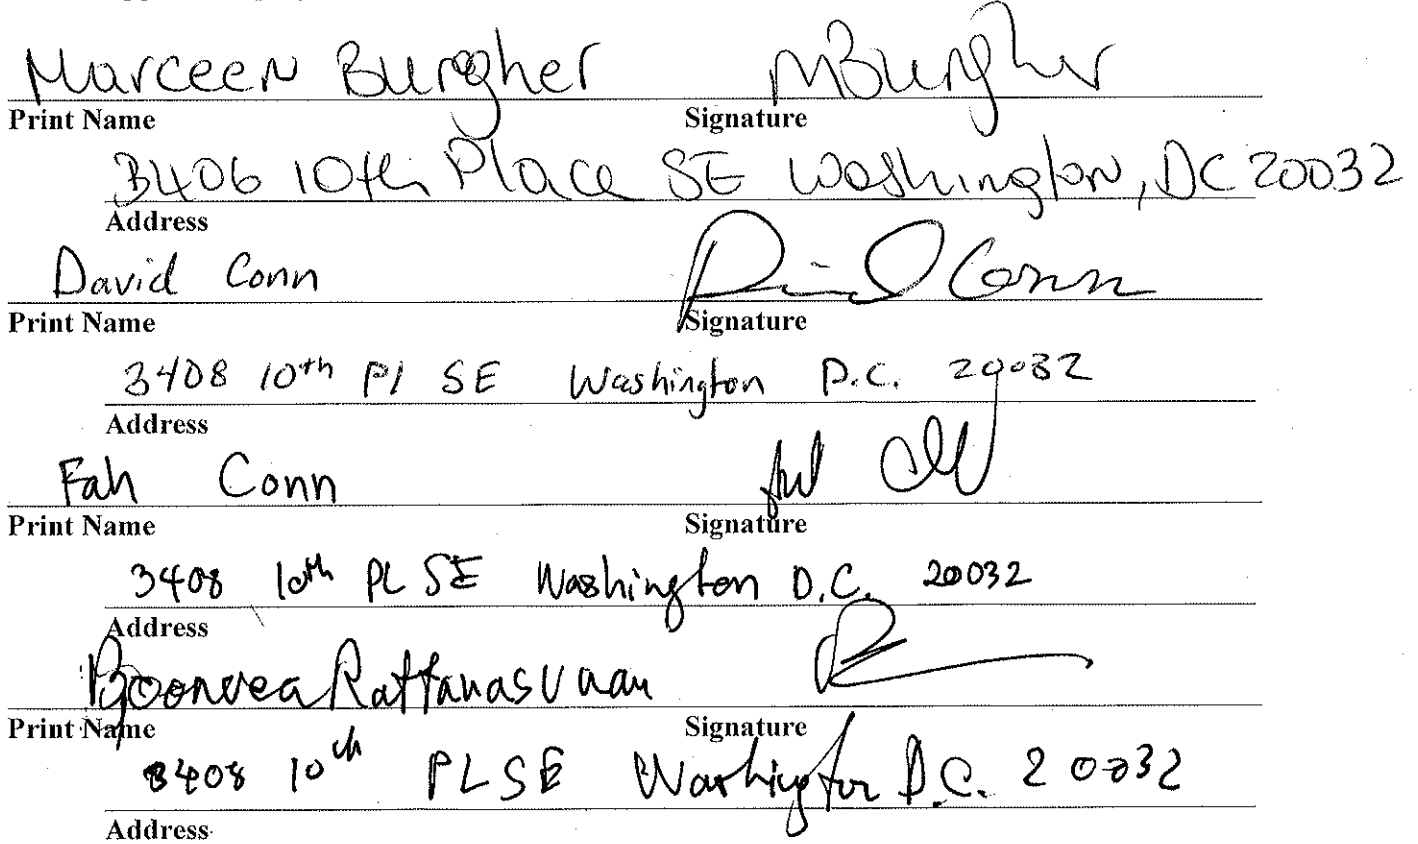 Marceen Burgher MBurgher
Print Name Signature
3406 10th Place SE Washington, DC 20032
Address
David Conn David Conn
Print Name Signature
3408 10th Pl SE Washington D.C. 20032
Address
Fah Conn
Print Name Signature
3408 10th PL SE Washington D.C. 20032
Address
Print Name Signature
3408 10th PL SE Washington D.C. 20032
Address